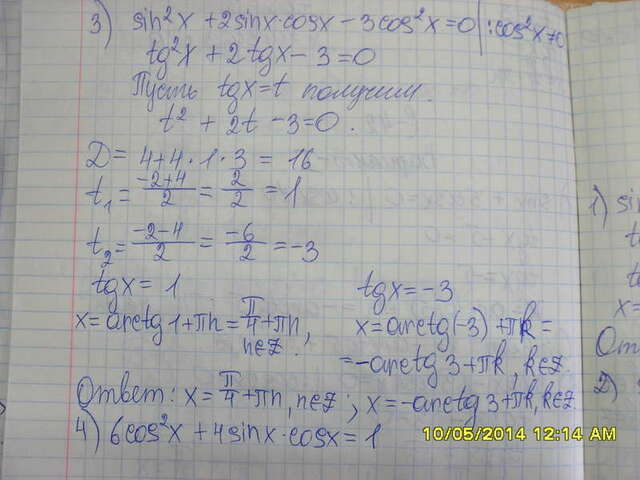 3) sin²x + 2sinx·cosx - 3cos²x = 0 | :cos²x≠0
tg²x + 2tgx - 3 = 0
Пусть tgx = t получим.
t² + 2t - 3 = 0.
D = 4+4·1·3 = 16
t₁ = (-2+4)/2 = 2/2 = 1
t₂ = (-2-4)/2 = -6/2 = -3
tgx = 1
x = arctg1 + πn = π/4 + πn, n∈Z.
tgx = -3
x = arctg(-3) + πk =
= -arctg3 + πk, k∈Z.
Ответ: x = π/4 + πn, n∈Z; x = -arctg3 + πk, k∈Z.
4) 6cos²x + 4sinx·cosx = 1
1) sin
t
t
x =
От
2)
10/05/2014 12:14 AM